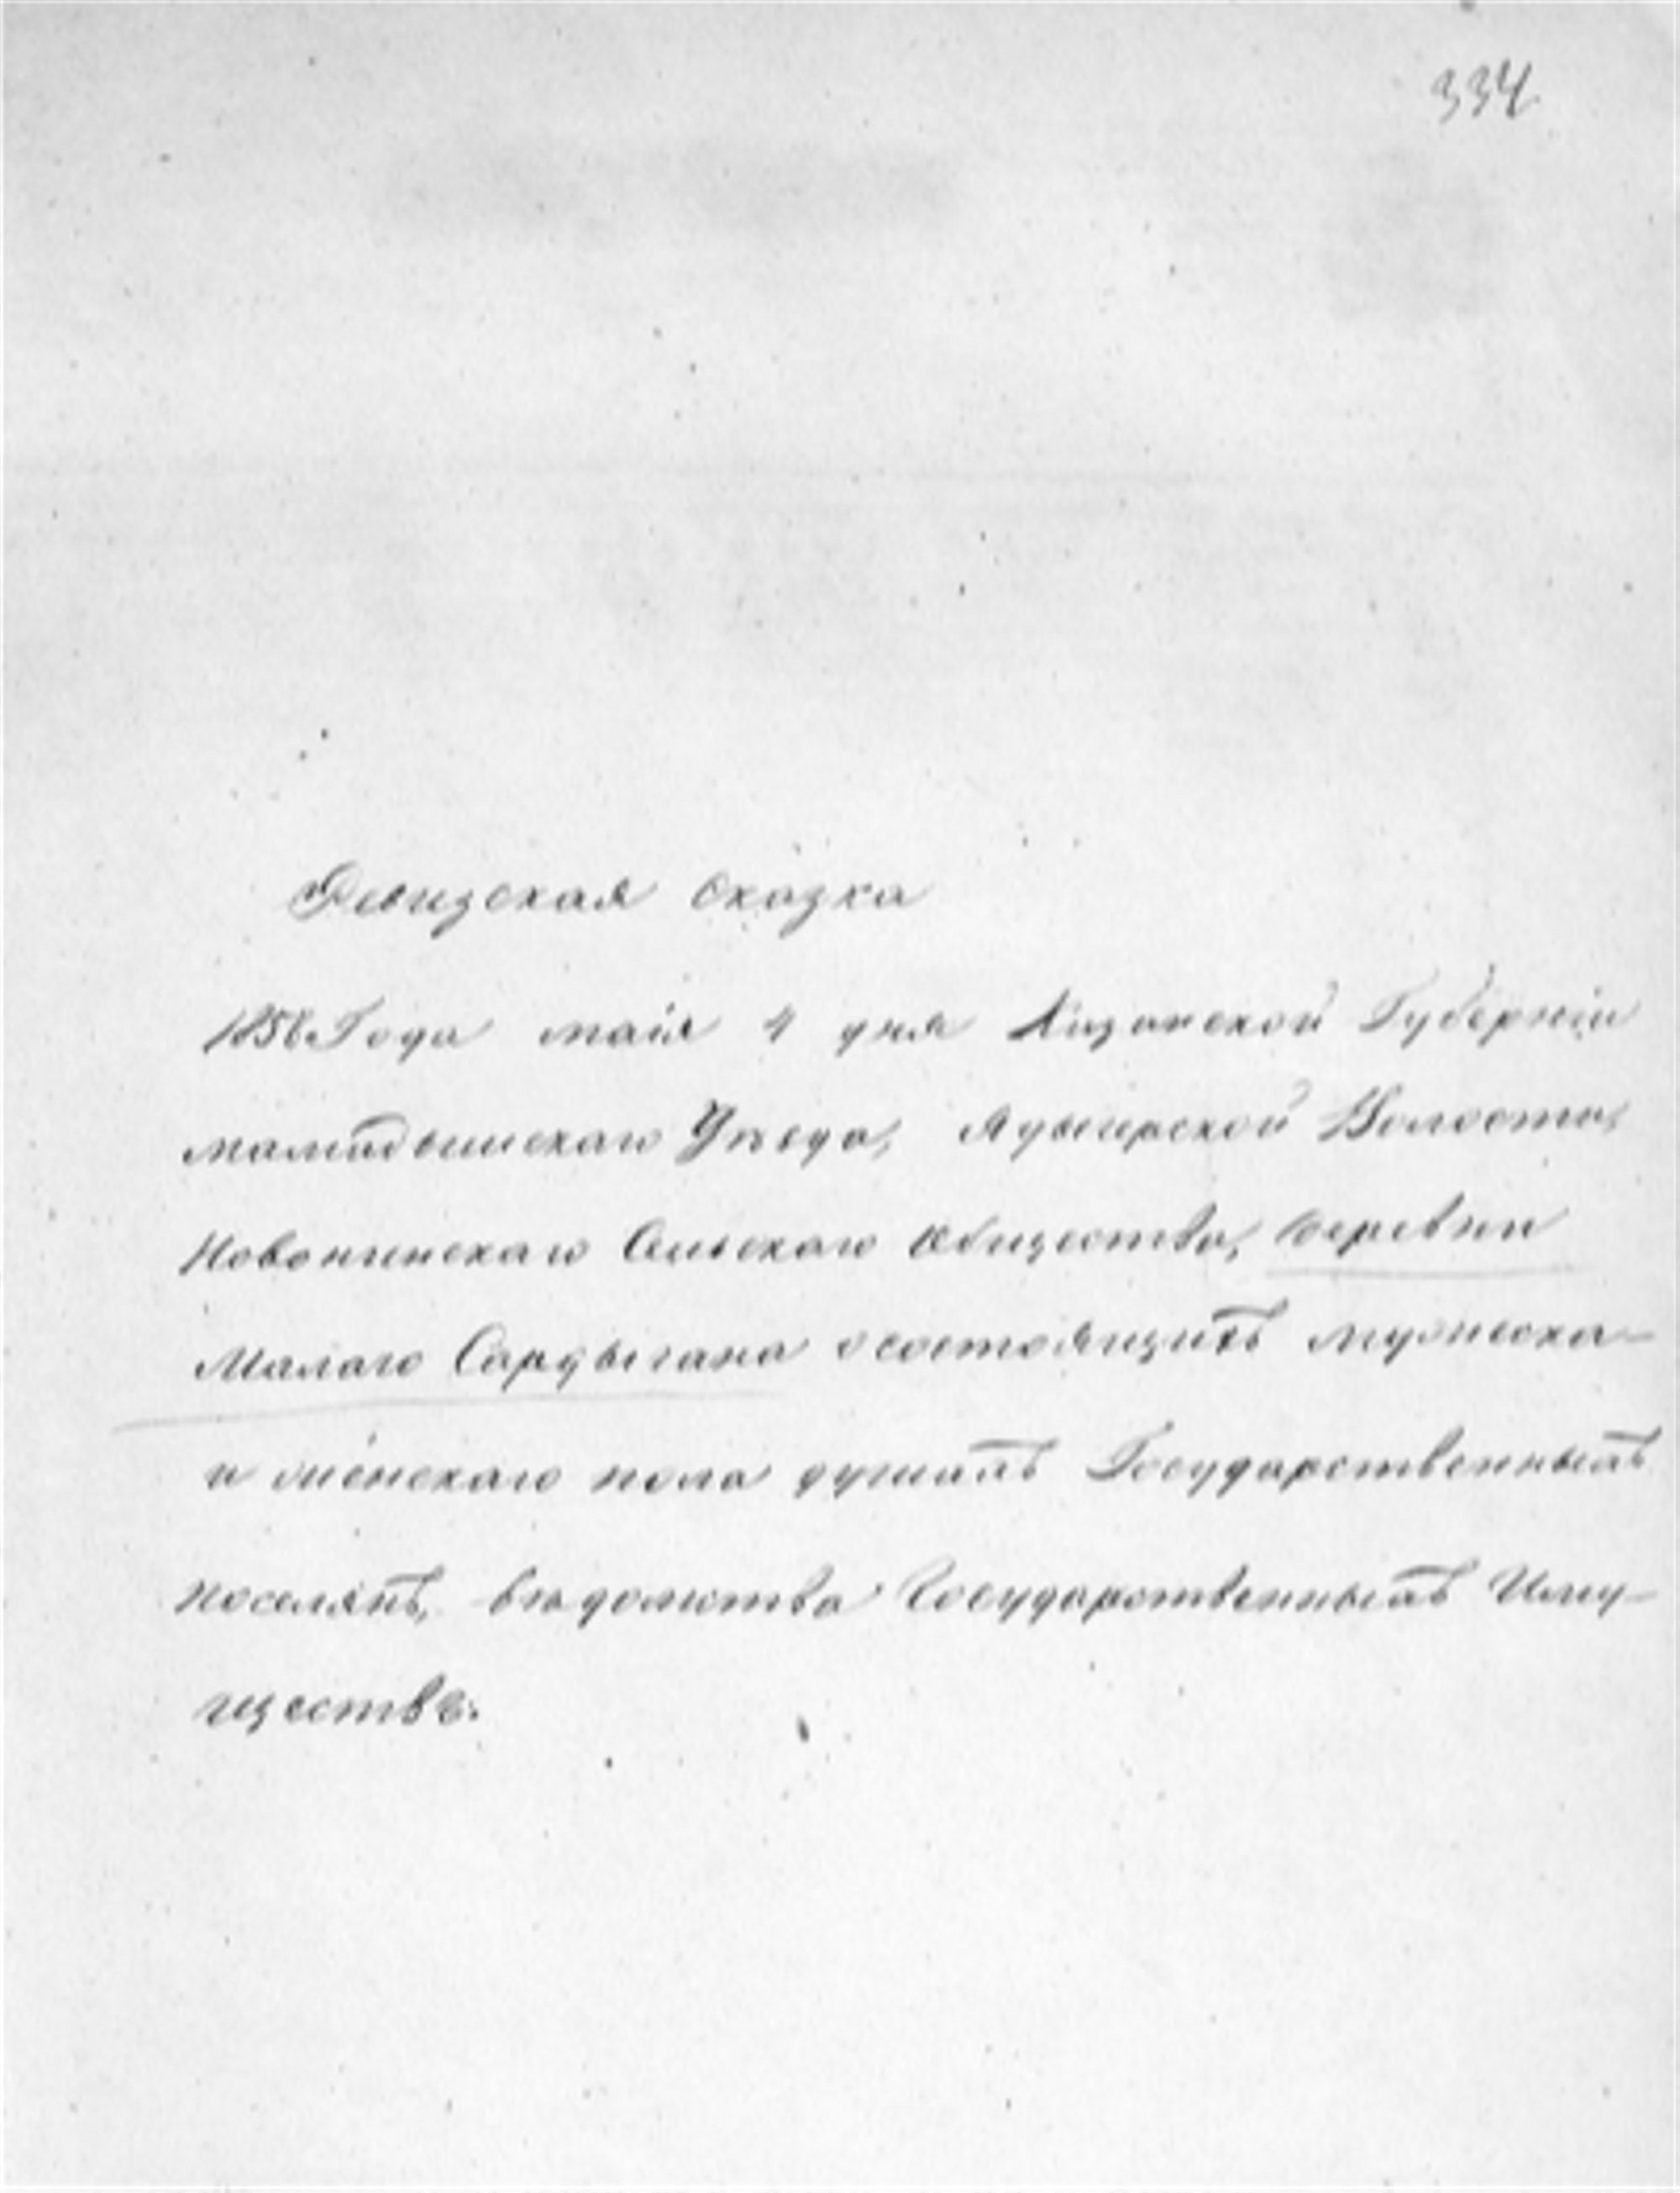 334
Ревизская сказка
1858 Года маія 4 дня Казанской Губерніи
мамадышскаго Уѣзда, Адыгерской Волости,
Сельскаго Общества, деревни
Малаго Сардыгана о состоящихъ мужеска-
и женскаго пола душахъ Государственныхъ
поселянъ, вѣдомства Государственныхъ Иму-
ществъ.